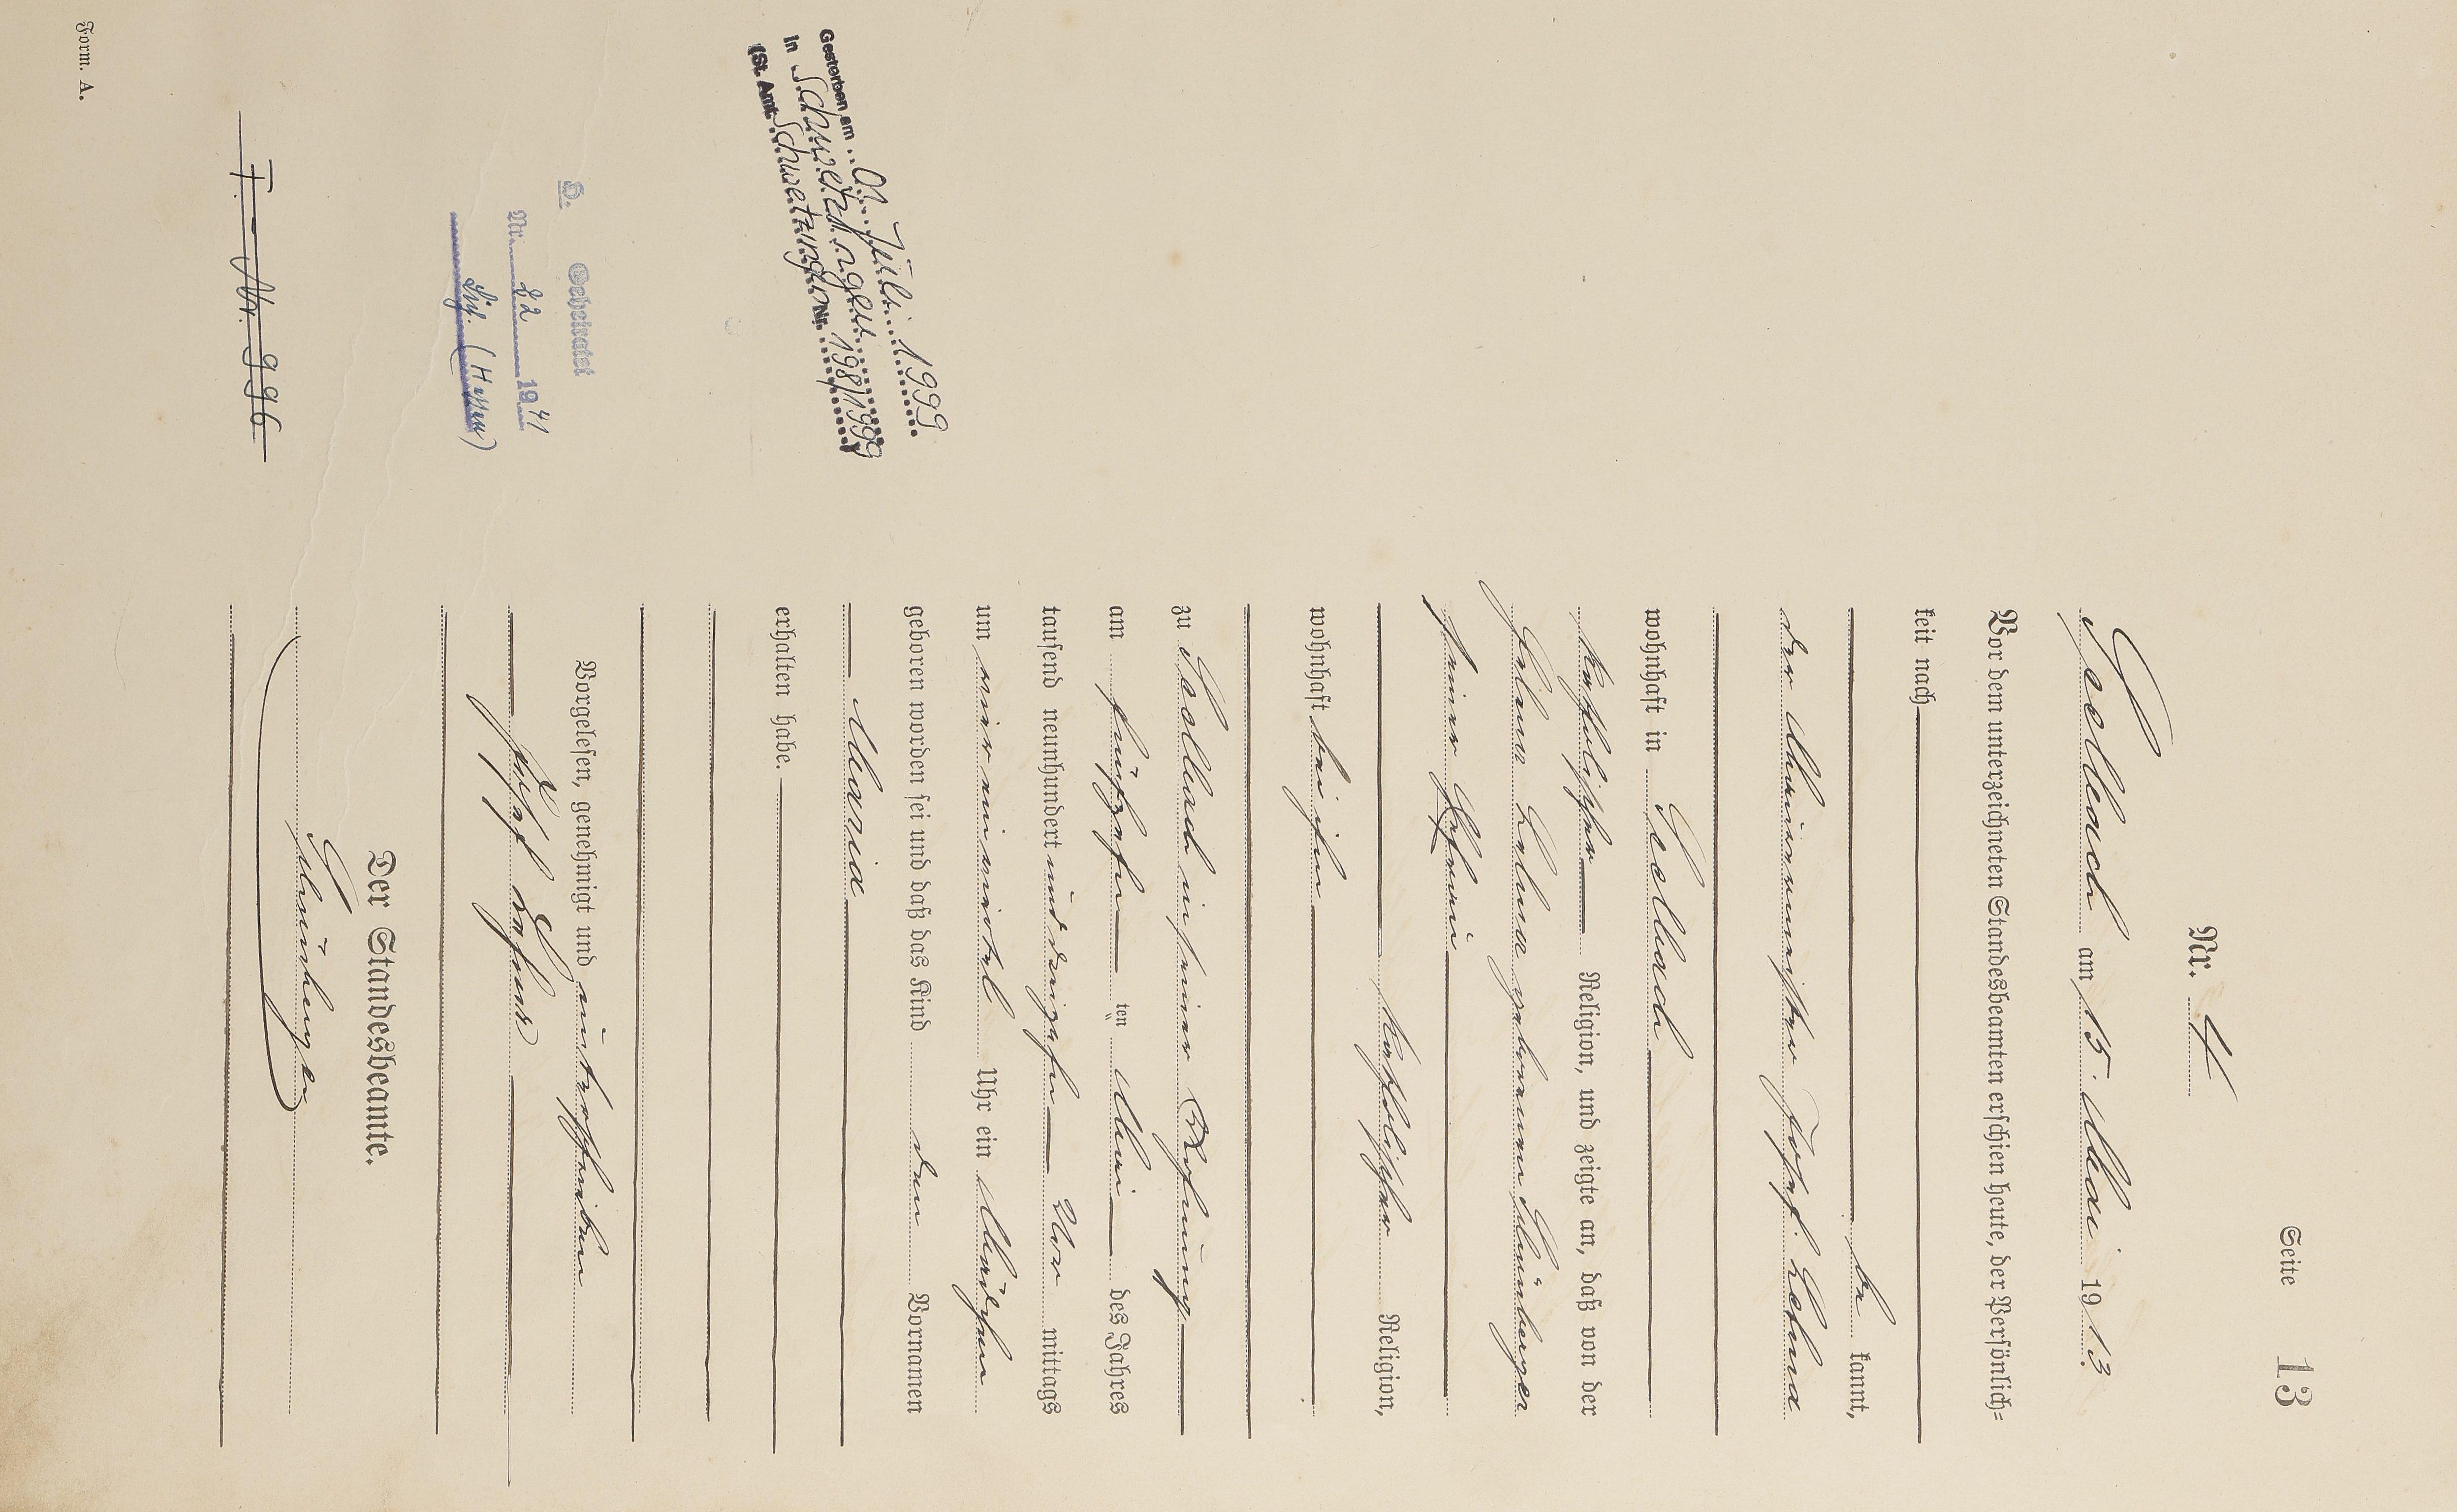 Seite 13
Nr. 4
am 15. Mai 1913.
Vor dem unterzeichneten Standesbeamten erschien heute, der Persönlich-
keit nach
be kannt,
der Maurermeister Josef Lehna
wohnhaft in
katholischer Religion, und zeigte an, daß von der
Lehna geborenen Grünberger
seiner Ehefrau
katholischer Religion,
wohnhaft bei ihm
zu in seiner Wohnung
am fünfzehnten Mai des Jahres
tausend neunhundert und dreizehn Vor mittags
um vier ein viertel Uhr ein Mädchen
geboren worden sei und daß das Kind den Vornamen
Maria
erhalten habe.
Vorgelesen, genehmigt und unterschrieben
Josef Lehna
Der Standesbeamte.
Grünberger
Gestorben am 01. Juli 1999
in Schwetzingen
(St. Amt Schwetzingen Nr. 198/1999)
H. Geheiratet
Nr. 22 1941
(Hessen)
F. - Nr. 996
Form. A.